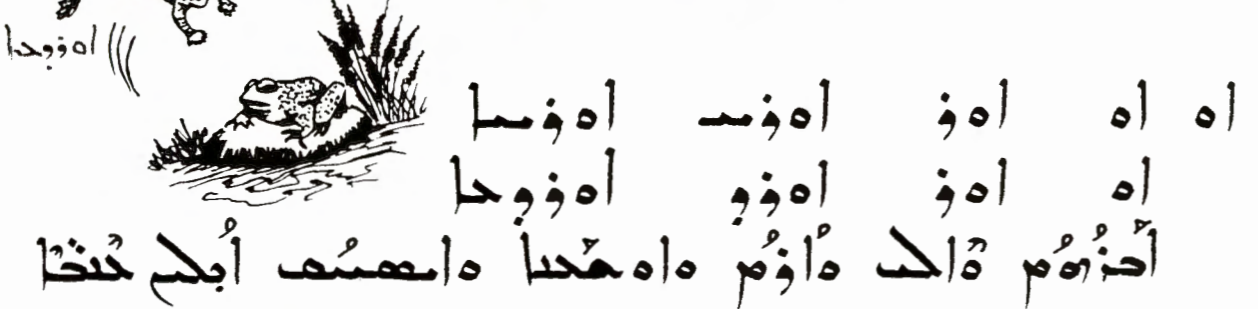 ܐܘܪܕܥܐ
ܐܘ ܐܘ ܐܘܪ ܐܘܪܚ ܐܘܪܚܐ
ܐܘ ܐܘܪ ܐܘܪܕ ܐܘܪܕܥܐ
ܐܰܒܪܳܗܳܡ ܘܶܐܠܝ ܘܳܐܪܳܡ ܘܐܘܫܰܥܢܐ ܘܐܝܣܚܳܩ ܐܳܟܠܝܢ ܥܶܢܒ̈ܶܐ